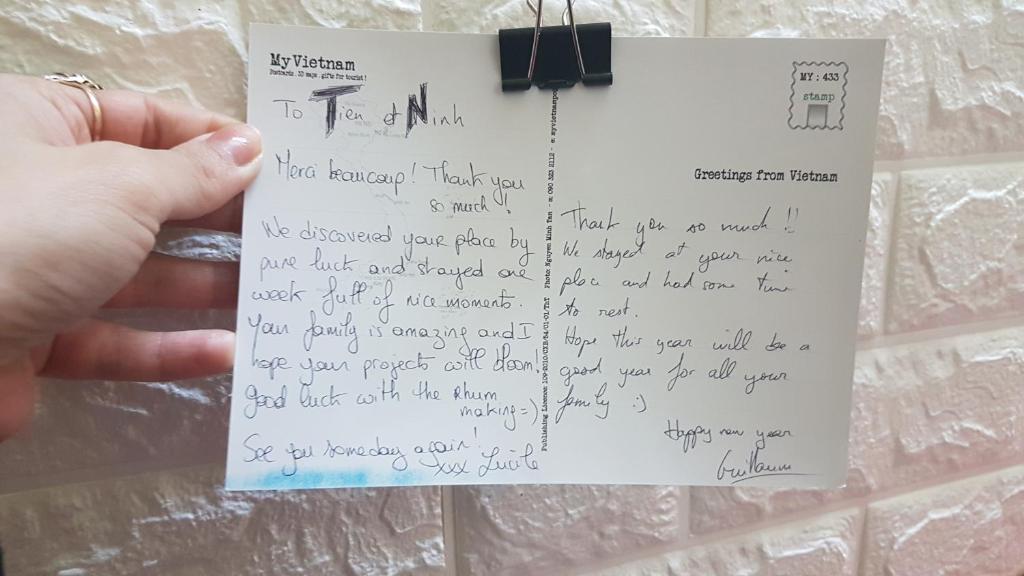 MyVietnam
Postcards. 3D maps. gifts for tourist!
To Tien et Ninh
Merci beaucoup! Thank you
so much!
We discovered your place by
pure luck and stayed one
week full of nice moments.
Your family is amazing and I
hope your projects will bloom!
good luck with the Rhum
making =)
See you someday again!
xxx Lucile
Publishing Licence: Photo: Nguyen Minh Tan - m: 090 323 2112 - e: myvietnampo
MY : 433
stamp
Greetings from Vietnam
Thank you so much !!
We stayed at your nice
place and had some time
to rest.
Hope this year will be a
good year for all your
family :)
Happy new year
Guillaume